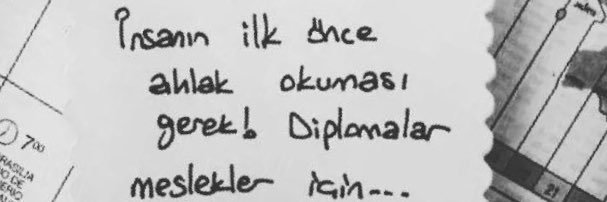 İnsanın ilk önce
ahlak okuması
gerek! Diplomalar
meslekler için...
7⁰⁰
21